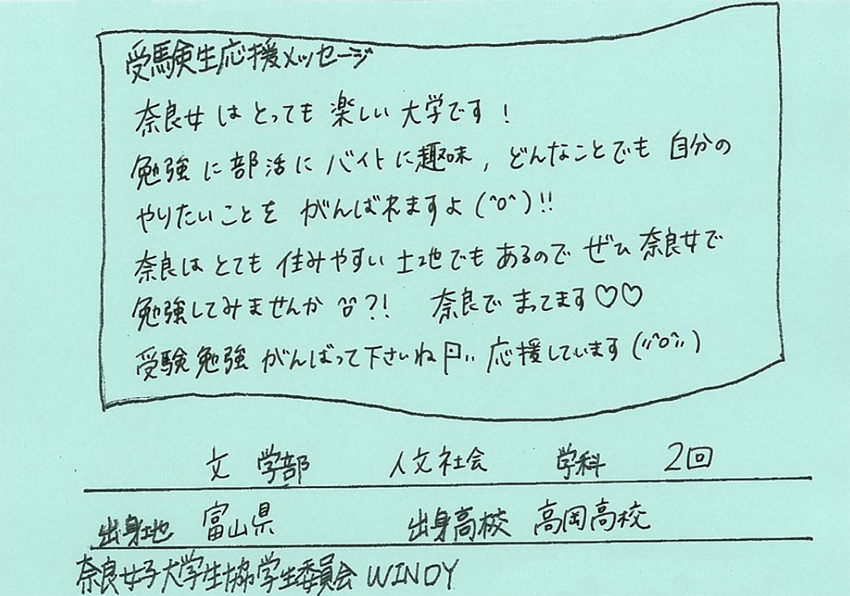 受験生応援メッセージ
奈良女はとっても楽しい大学です!
勉強に部活にバイトに趣味, どんなことでも自分の
やりたいことをがんばれますよ(^o^)!!
奈良はとても住みやすい土地でもあるのでぜひ奈良女で
勉強してみませんか?! 奈良でまってます♡♡
受験勉強がんばって下さいね 応援しています("^o^")
文 学部 人文社会 学科 2回
出身地 富山県 出身高校 高岡高校
奈良女子大学生協学生委員会 WINDY